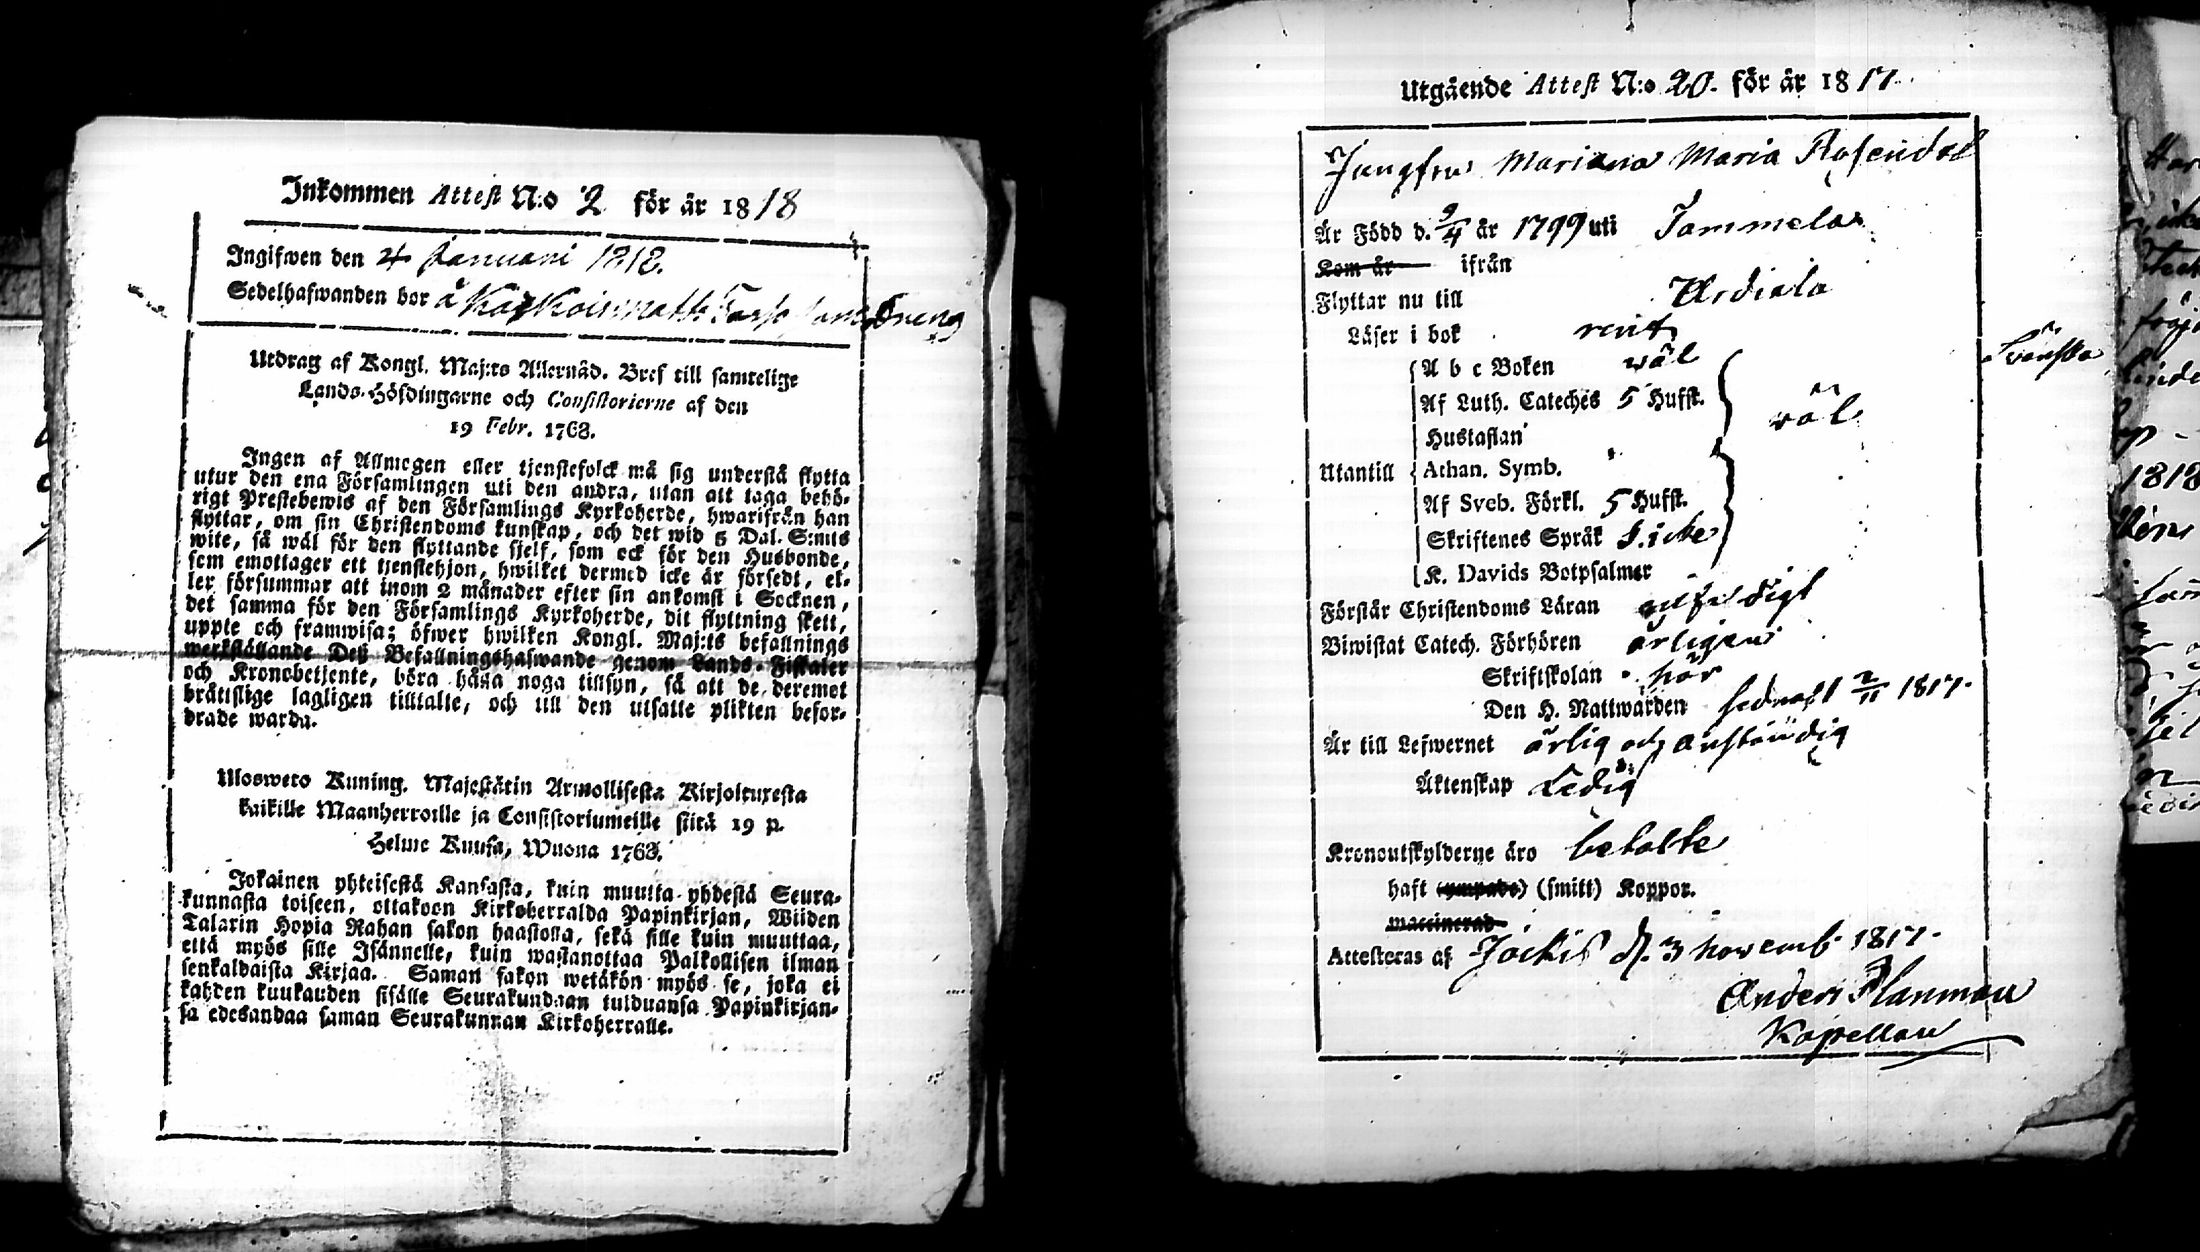 Inkommen Attest N:o 2 för år 1818
Ingifwen den 4 Januari 1818.
Sedelhafwanden bor å
Utdrag af Kongl. Maj:ts Allernåd. Bref till samtelige
Lands-Höfdingarne och Consistorierne af den
19 Febr. 1763.
Ingen af Allmogen eller tjenstefolck må sig understå flytta
utur den ena Församlingen uti den andra, utan att taga behö-
rigt Prestebewis af den Församlings Kyrkoherde, hwarifrån han
flyttar, om sin Christendoms kunskap, och det wid 5 Dal. S:mts
wite, så wäl för den flyttande sjelf, som ock för den Husbonde,
som emottager ett tjenstehjon, hwilket dermed icke är försedt, el-
ler försummar att inom 2 månader efter sin ankomst i Socknen,
det samma för den Församlings Kyrkoherde, dit flyttning skett,
uppte och framwisa; öfwer hwilken Kongl. Maj:ts befallnings
werkställande Deß Befallningshafwande genom Lands-Fiskaler
och Kronobetjente, böra hålla noga tillsyn, så att de deremot
bråttslige lagligen tilltalte, och till den utsatte plikten befor-
drade warda.
Ulosweto Kuning. Majestätin Armollisesta Kirjoituxesta
kaikille Maanherroille ja Consistoriumeille siitä 19 p.
Helme Kuusa, Wuona 1763.
Jokainen yhteisestä Kansasta, kuin muutta yhdestä Seura-
kunnasta toiseen, ottakoon Kirkoherralda Papinkirjan, Wiiden
Talarin Hopia Rahan sakon haastolla, sekä sille kuin muuttaa,
että myös sille Isännelle, kuin wastanottaa Palkollisen ilman
senkaldaista Kirjaa. Saman sakon wetäkön myös se, joka ei
kahden kuukauden sisälle Seurakundaan tulduansa Papinkirjan-
sa edesandaa saman Seurakunnan Kirkoherralle.
Utgående Attest N:o 20. för år 1817
Jungfru Mariana Maria Rosendal
Är Född d. 9/4 år 1799 uti Tammela
Kom år ifrån
Flyttar nu till Urdiala
Läser i bok rent
Svenska
A b c Boken wäl
Af Luth. Cateches 5 Hufst.
wäl
Hustaflan
Utantill Athan. Symb.
Af Sveb. Förkl. 5 Hufst.
Skriftenes Språk
K. Davids Botpsalmer
Förstår Christendoms Läran
Biwistat Catech. Förhören årligen
Skriftskolan här
Den H. Nattwarden sednast 2/11 1817.
Är till Lefwernet ärlig och anständig
Äktenskap Ledig
Kronoutskylderne äro betalte
haft (ympade) (smitt) Koppor.
waccinerad
Attesteras af Jockis d. 3 novemb. 1817.
Anders Planman
Kapellan